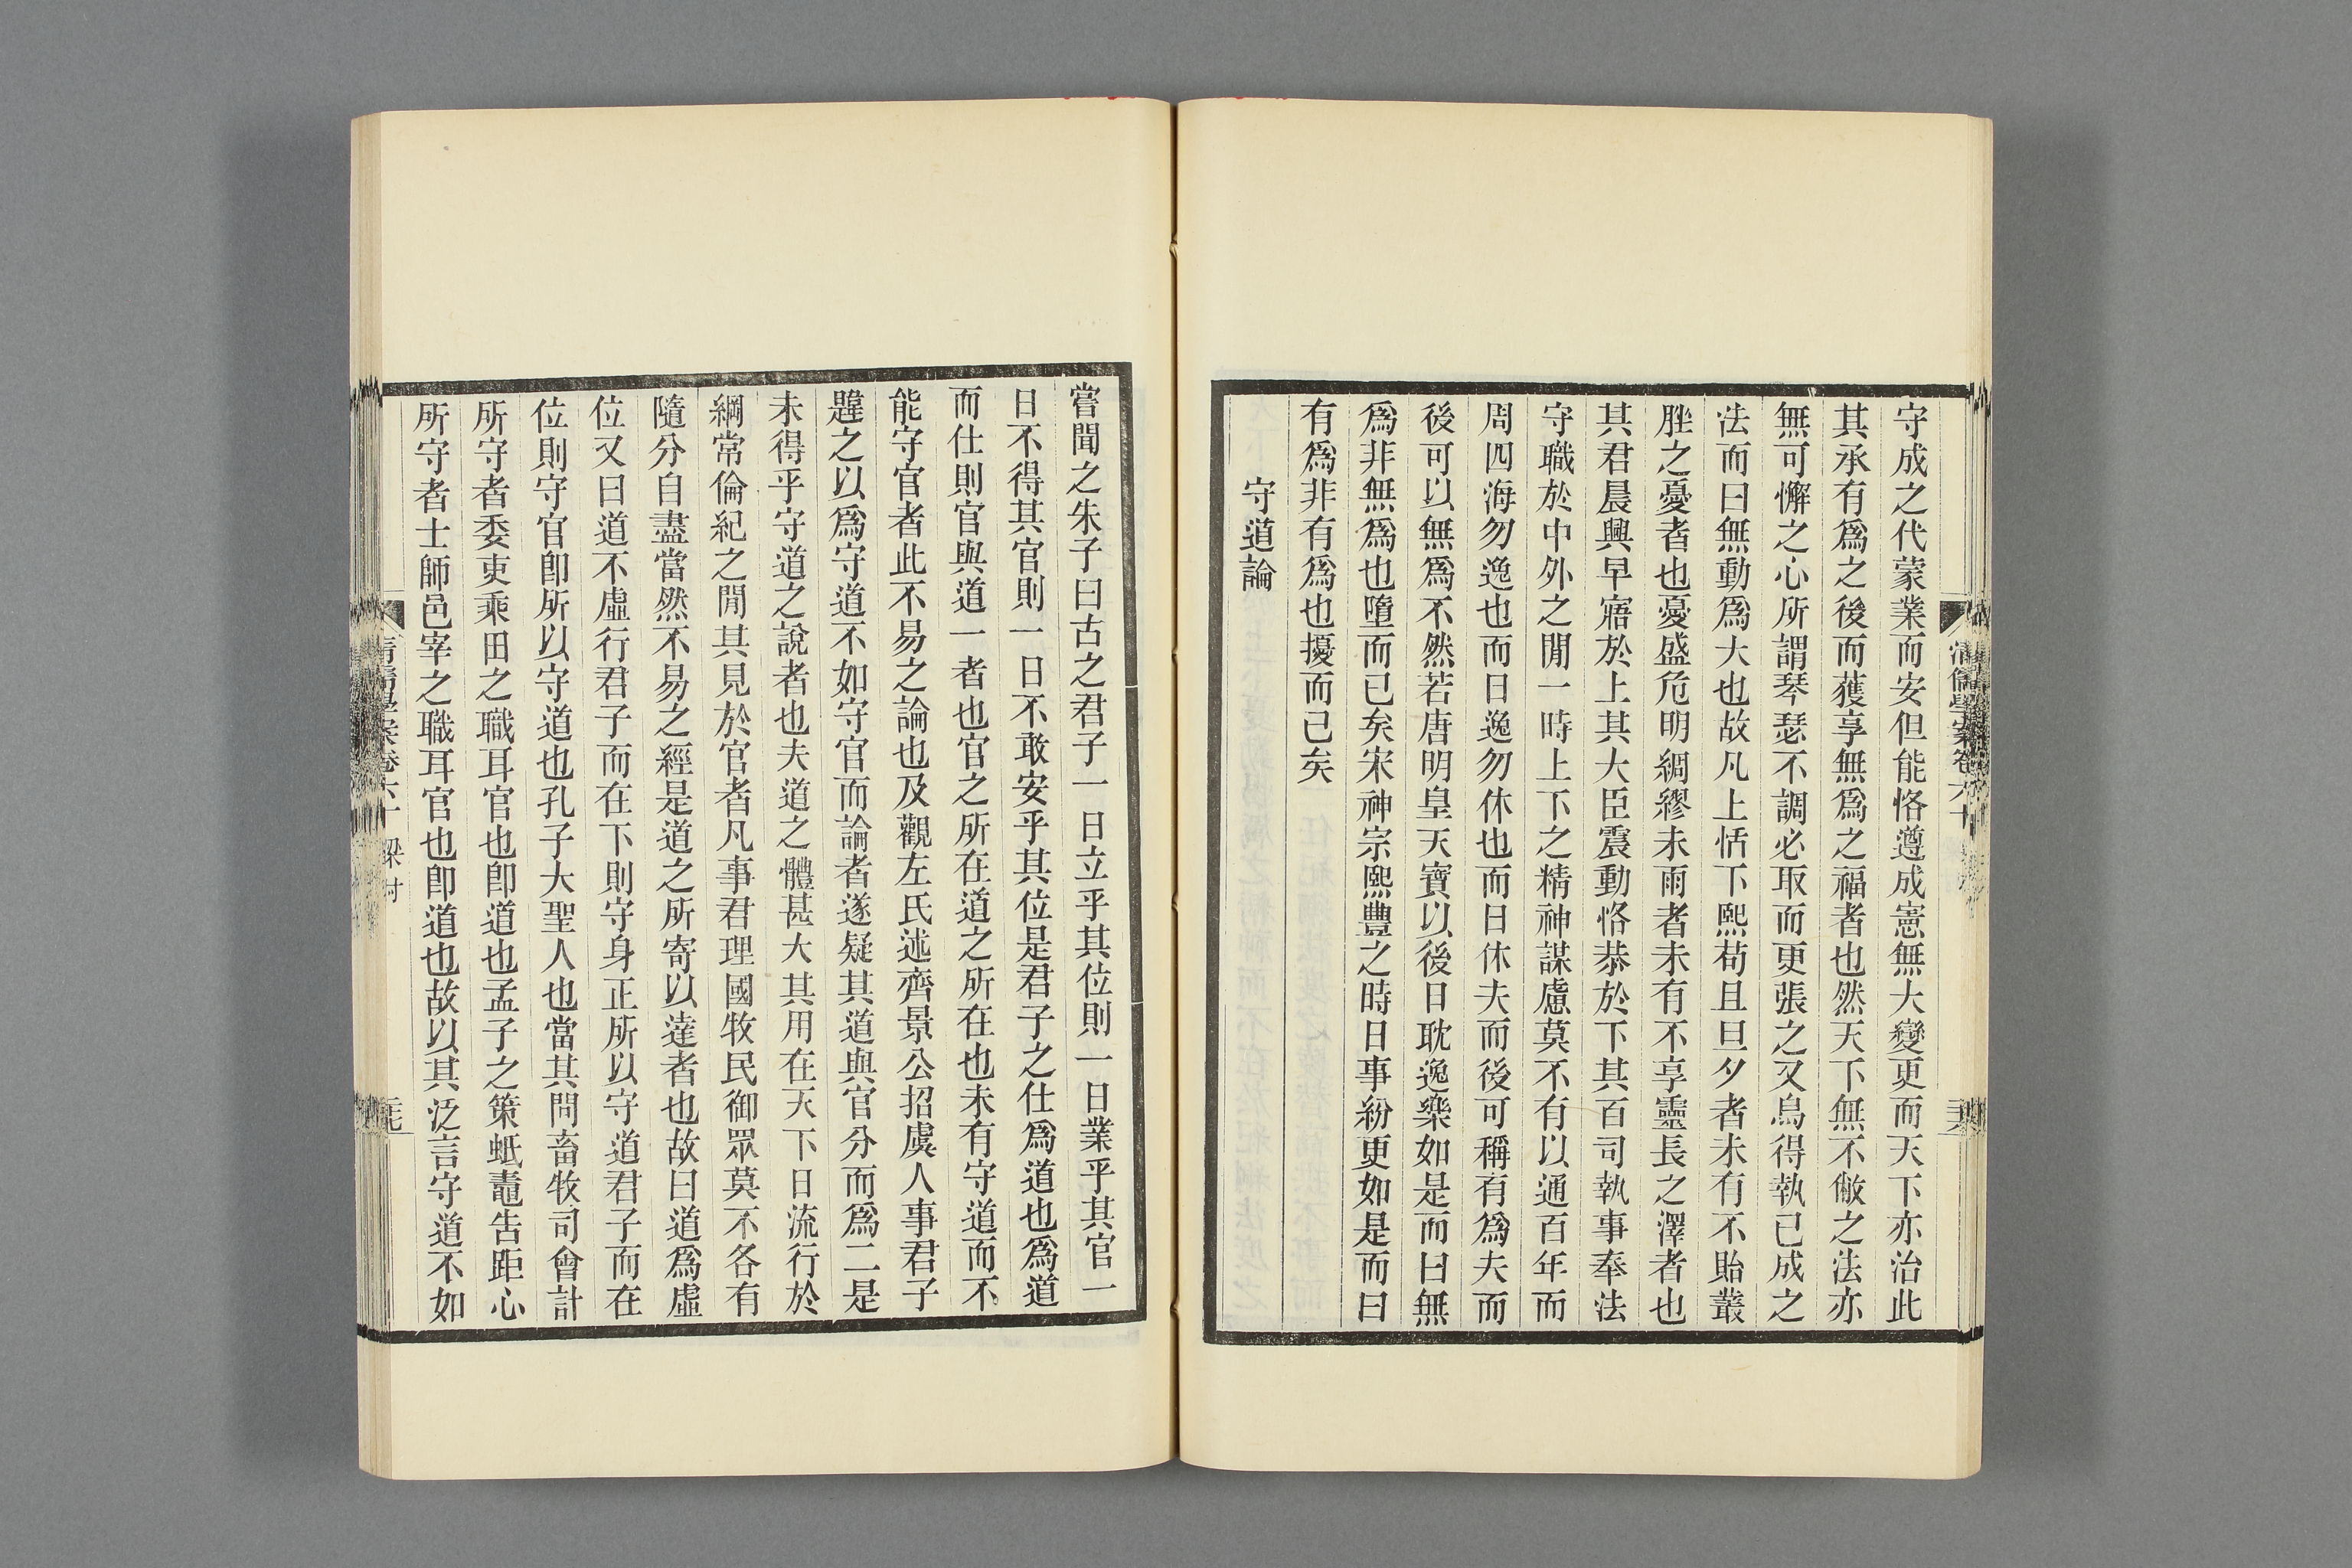 守成之代蒙業而安但能恪遵成憲無大變更而天下亦治此
其承有爲之後而獲享無爲之福者也然天下無不敝之法亦
無可懈之心所謂琴瑟不調必取而更張之又烏得執已成之
法而曰無動爲大也故凡上恬下熙苟且旦夕者未有不貽叢
脞之憂者也憂盛危明綢繆未雨者未有不享靈長之澤者也
其君晨興早寤於上其大臣震動恪恭於下其百司執事奉法
守職於中外之閒一時上下之精神謀慮莫不有以通百年而
周四海勿逸也而日逸勿休也而日休夫而後可稱有爲夫而
後可以無爲不然若唐明皇天寶以後日耽逸樂如是而曰無
爲非無爲也墮而已矣宋神宗熙豐之時日事紛更如是而曰
有爲非有爲也擾而已矣
守道論
清儒學案卷六十
嘗聞之朱子曰古之君子一日立乎其位則一日業乎其官一
日不得其官則一日不敢安乎其位是君子之仕爲道也爲道
而仕則官與道一者也官之所在道之所在也未有守道而不
能守官者此不易之論也及觀左氏述齊景公招虞人事君子
韙之以爲守道不如守官而論者遂疑其道與官分而爲二是
未得乎守道之說者也夫道之體甚大其用在天下日流行於
綱常倫紀之閒其見於官者凡事君理國牧民御眾莫不各有
隨分自盡當然不易之經是道之所寄以達者也故曰道爲虛
位又曰道不虛行君子而在下則守身正所以守道君子而在
位則守官卽所以守道也孔子大聖人也當其問畜牧司會計
所守者委吏乘田之職耳官也卽道也孟子之策蚳鼃告距心
所守者士師邑宰之職耳官也卽道也故以其泛言守道不如